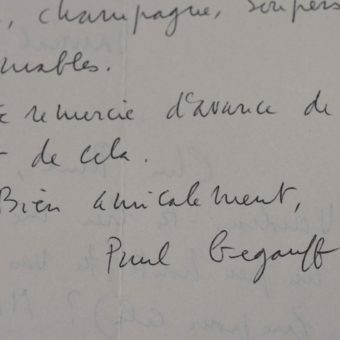 , champagne, soupers
mables.
te remercie d'avance de
de cela.
Bien amicalement,
Paul Gégauff